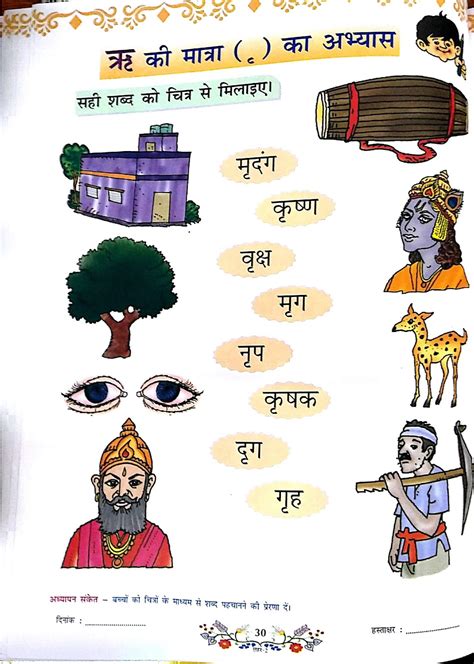 ऋ की मात्रा ( ृ ) का अभ्यास
सही शब्द को चित्र से मिलाइए।
मृदंग
कृष्ण
वृक्ष
मृग
नृप
कृषक
दृग
गृह
अध्यापन संकेत – बच्चों को चित्रों के माध्यम से शब्द पहचानने की प्रेरणा दें।
दिनांक : ........................
30
हस्ताक्षर : ........................